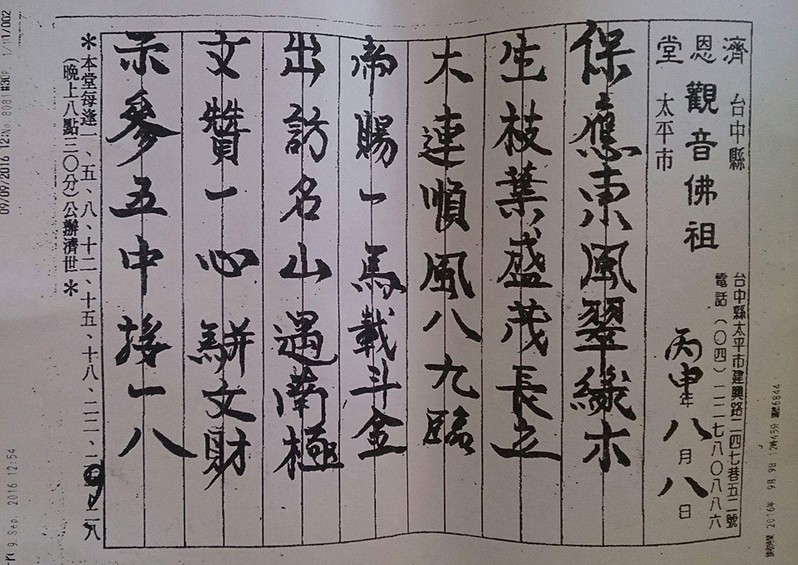 濟恩堂
台中縣太平市
觀音佛祖
台中縣太平市建興路二四七巷五二號
電話(〇四)二二七八〇八八六
丙申年八月八日
保應東風翠織木
生枝葉盛茂長立
大連順風八九臨
南賜一馬載斗金
出訪名山遇南極
文贊一心駢文財
示參五中接一八
*本堂每逢一、五、八、十二、十五、十八、二二、二八
(晚上八點三〇分)公辦濟世*
09/09/2016 12:
9. Sep. 2016 12:54
2016年 9月 9日 12時45分